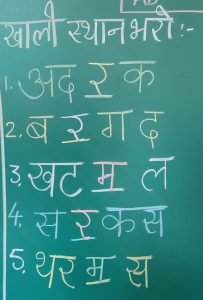 खाली स्थान भरो :-
1. अद र क
2. ब र ग द
3. खट म ल
4. स र क स
5. थर म स